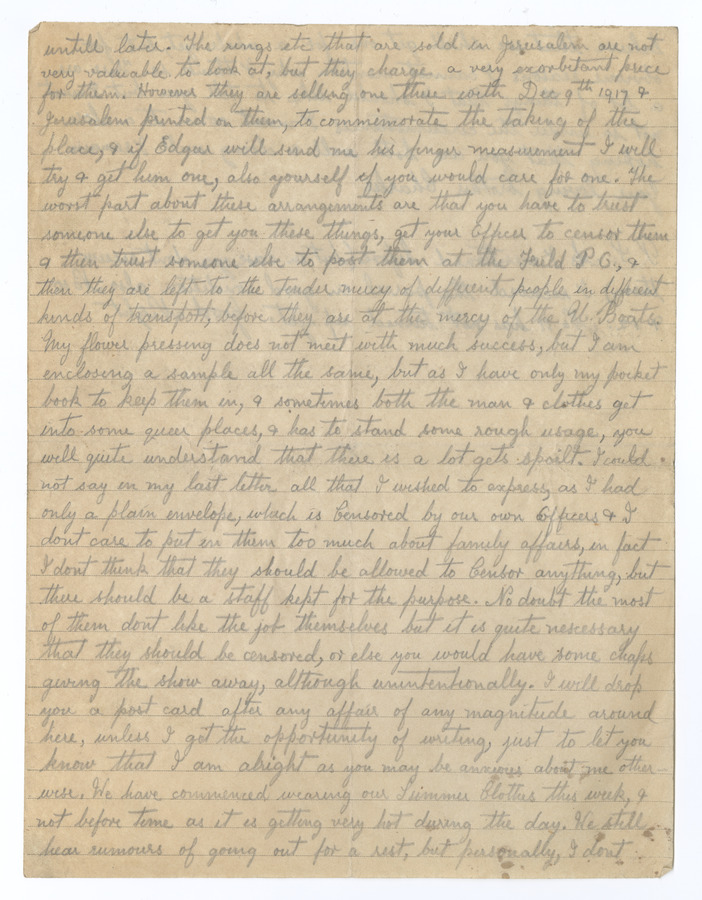 untill later. The rings etc that are sold in Jerusalem are not
very valuable to look at, but they charge a very exorbitant price
for them. However they are selling one there with Dec 9th 1917 &
Jerusalem printed on them, to commemorate the taking of the
place, & if Edgar will send me his finger measurement I will
try & get him one, also yourself if you would care for one. The
worst part about these arrangements are that you have to trust
someone else to get you these things, get your Officer to censor them
& then trust someone else to post them at the Feild P O., &
then they are left to the tender mercy of different people in different
kinds of transport, before they are at the mercy of the U. Boats.
My flower pressing does not meet with much success, but I am
enclosing a sample all the same, but as I have only my pocket
book to keep them in, & sometimes both the man & clothes get
into some queer places, & has to stand some rough usage, you
will quite understand that there is a lot gets spoilt. I could
not say in my last letter all that I wished to express, as I had
only a plain envelope, which is Censored by our own Officers & I
dont care to put in them too much about family affairs, in fact
I dont think that they should be allowed to Censor anything, but
there should be a staff kept for the purpose. No doubt the most
of them dont like the job themselves but it is quite nescessary
that they should be censored, or else you would have some chaps
giving the show away, although unintentionally. I will drop
you a post card after any affair of any magnitude around
here, unless I get the opportunity of writing, just to let you
know that I am alright as you may be anxious about me other-
wise. We have commenced wearing our Summer Clothes this week, &
not before time as it is getting very hot during the day. We still
hear rumours of going out for a rest, but personally, I dont